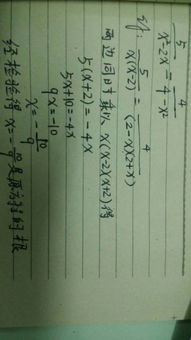 5/(x²-2x) = 4/(4-x²)
解: 5/(x(x-2)) = 4/((2-x)(2+x))
两边同时乘以 x(x-2)(x+2)得
5(x+2)=-4x
5x+10=-4x
9x=-10
x=-10/9
经检验得 x=-10/9是原方程的根